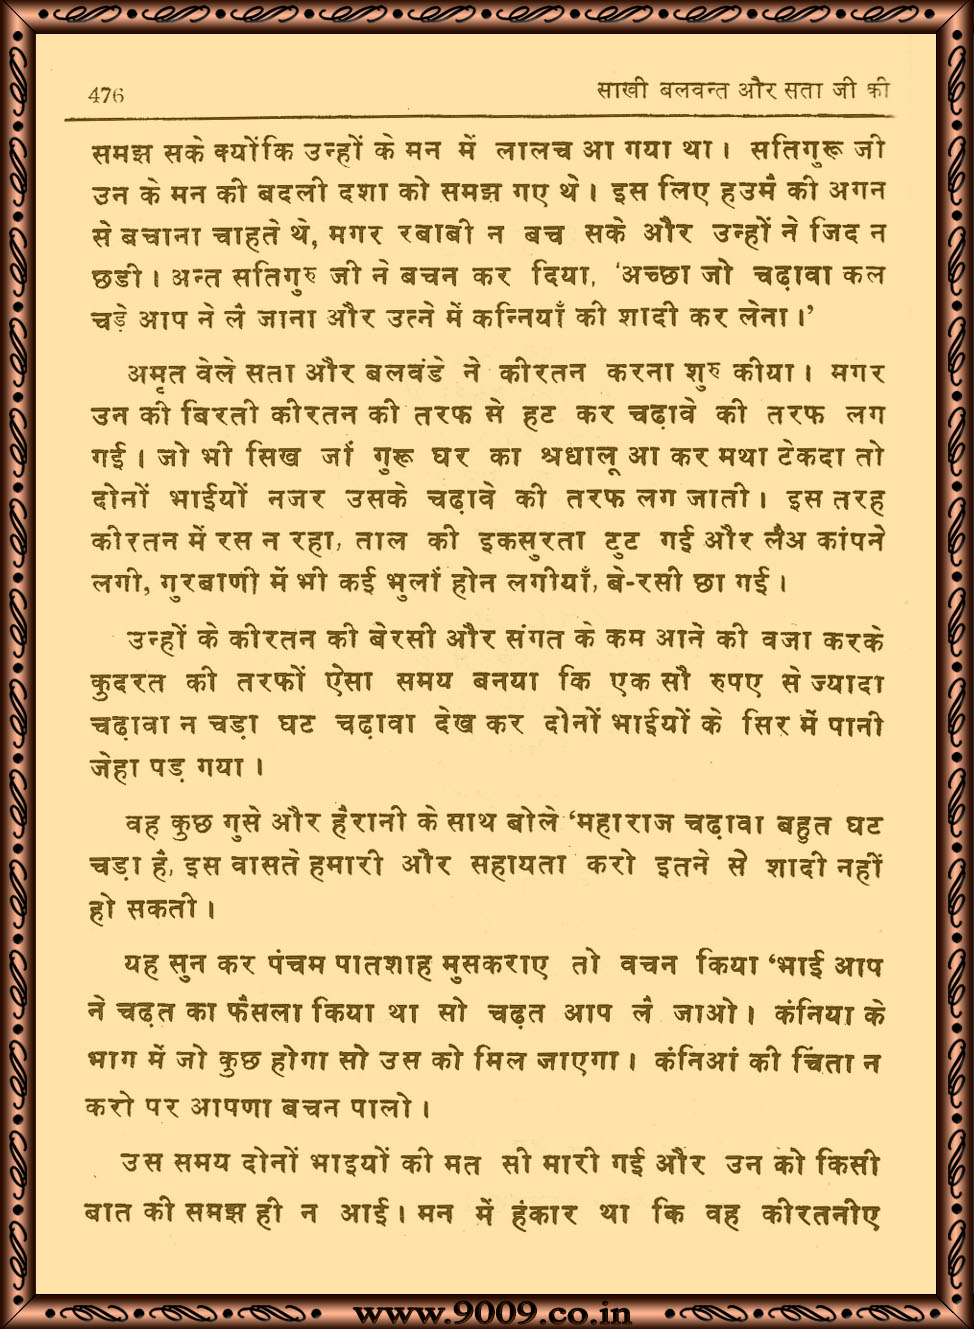 476 साखी बलवन्त और सता जी की
समझ सके क्योंकि उन्हों के मन में लालच आ गया था। सतिगुरू जी
उन के मन की बदली दशा को समझ गए थे। इस लिए हउमैं की अगन
से बचाना चाहते थे, मगर रबाबी न बच सके और उन्हों ने जिद न
छडी। अन्त सतिगुरु जी ने बचन कर दिया, ‘अच्छा जो चढ़ावा कल
चड़े आप ने लै जाना और उत्ने में कन्नियाँ की शादी कर लेना।’
अमृत वेले सता और बलवंडे ने कीरतन करना शुरु कीया। मगर
उन की बिरती कीरतन की तरफ से हट कर चढ़ावे की तरफ लग
गई। जो भी सिख जां गुरू घर का श्रधालू आ कर मथा टेकदा तो
दोनों भाईयों नजर उसके चढ़ावे की तरफ लग जाती। इस तरह
कीरतन में रस न रहा, ताल की इकसुरता टुट गई और लैअ कांपने
लगी, गुरबाणी में भी कई भुलां होन लगीयाँ, बे-रसी छा गई।
उन्हों के कीरतन की बेरसी और संगत के कम आने की वजा करके
कुदरत की तरफों ऐसा समय बनया कि एक सौ रुपए से ज्यादा
चढ़ावा न चड़ा घट चढ़ावा देख कर दोनों भाईयों के सिर में पानी
जेहा पड़ गया।
वह कुछ गुसे और हैरानी के साथ बोले ‘महाराज चढ़ावा बहुत घट
चड़ा है, इस वासते हमारी और सहायता करो इतने से शादी नहीं
हो सकती।
यह सुन कर पंचम पातशाह मुसकराए तो वचन किया ‘भाई आप
ने चढ़त का फैसला किया था सो चढ़त आप लै जाओ। कंनिया के
भाग में जो कुछ होगा सो उस को मिल जाएगा। कंनिआं की चिंता न
करो पर आपणा बचन पालो।
उस समय दोनों भाइयों की मत सी मारी गई और उन को किसी
बात की समझ ही न आई। मन में हंकार था कि वह कीरतनीए
www.9009.co.in